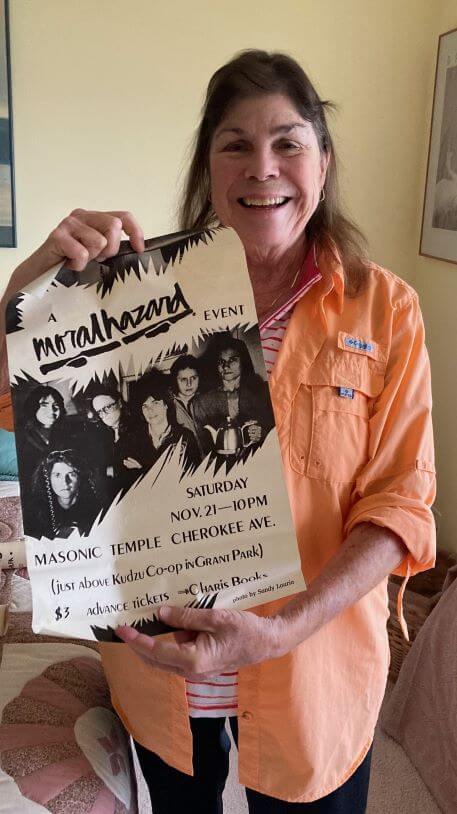 A
moral hazard
EVENT
SATURDAY
NOV. 21—10PM
MASONIC TEMPLE CHEROKEE AVE.
(just above Kudzu Co-op in Grant Park)
$3 ADVANCE TICKETS → Charis Books
photo by Sandy Lourin
Columbia